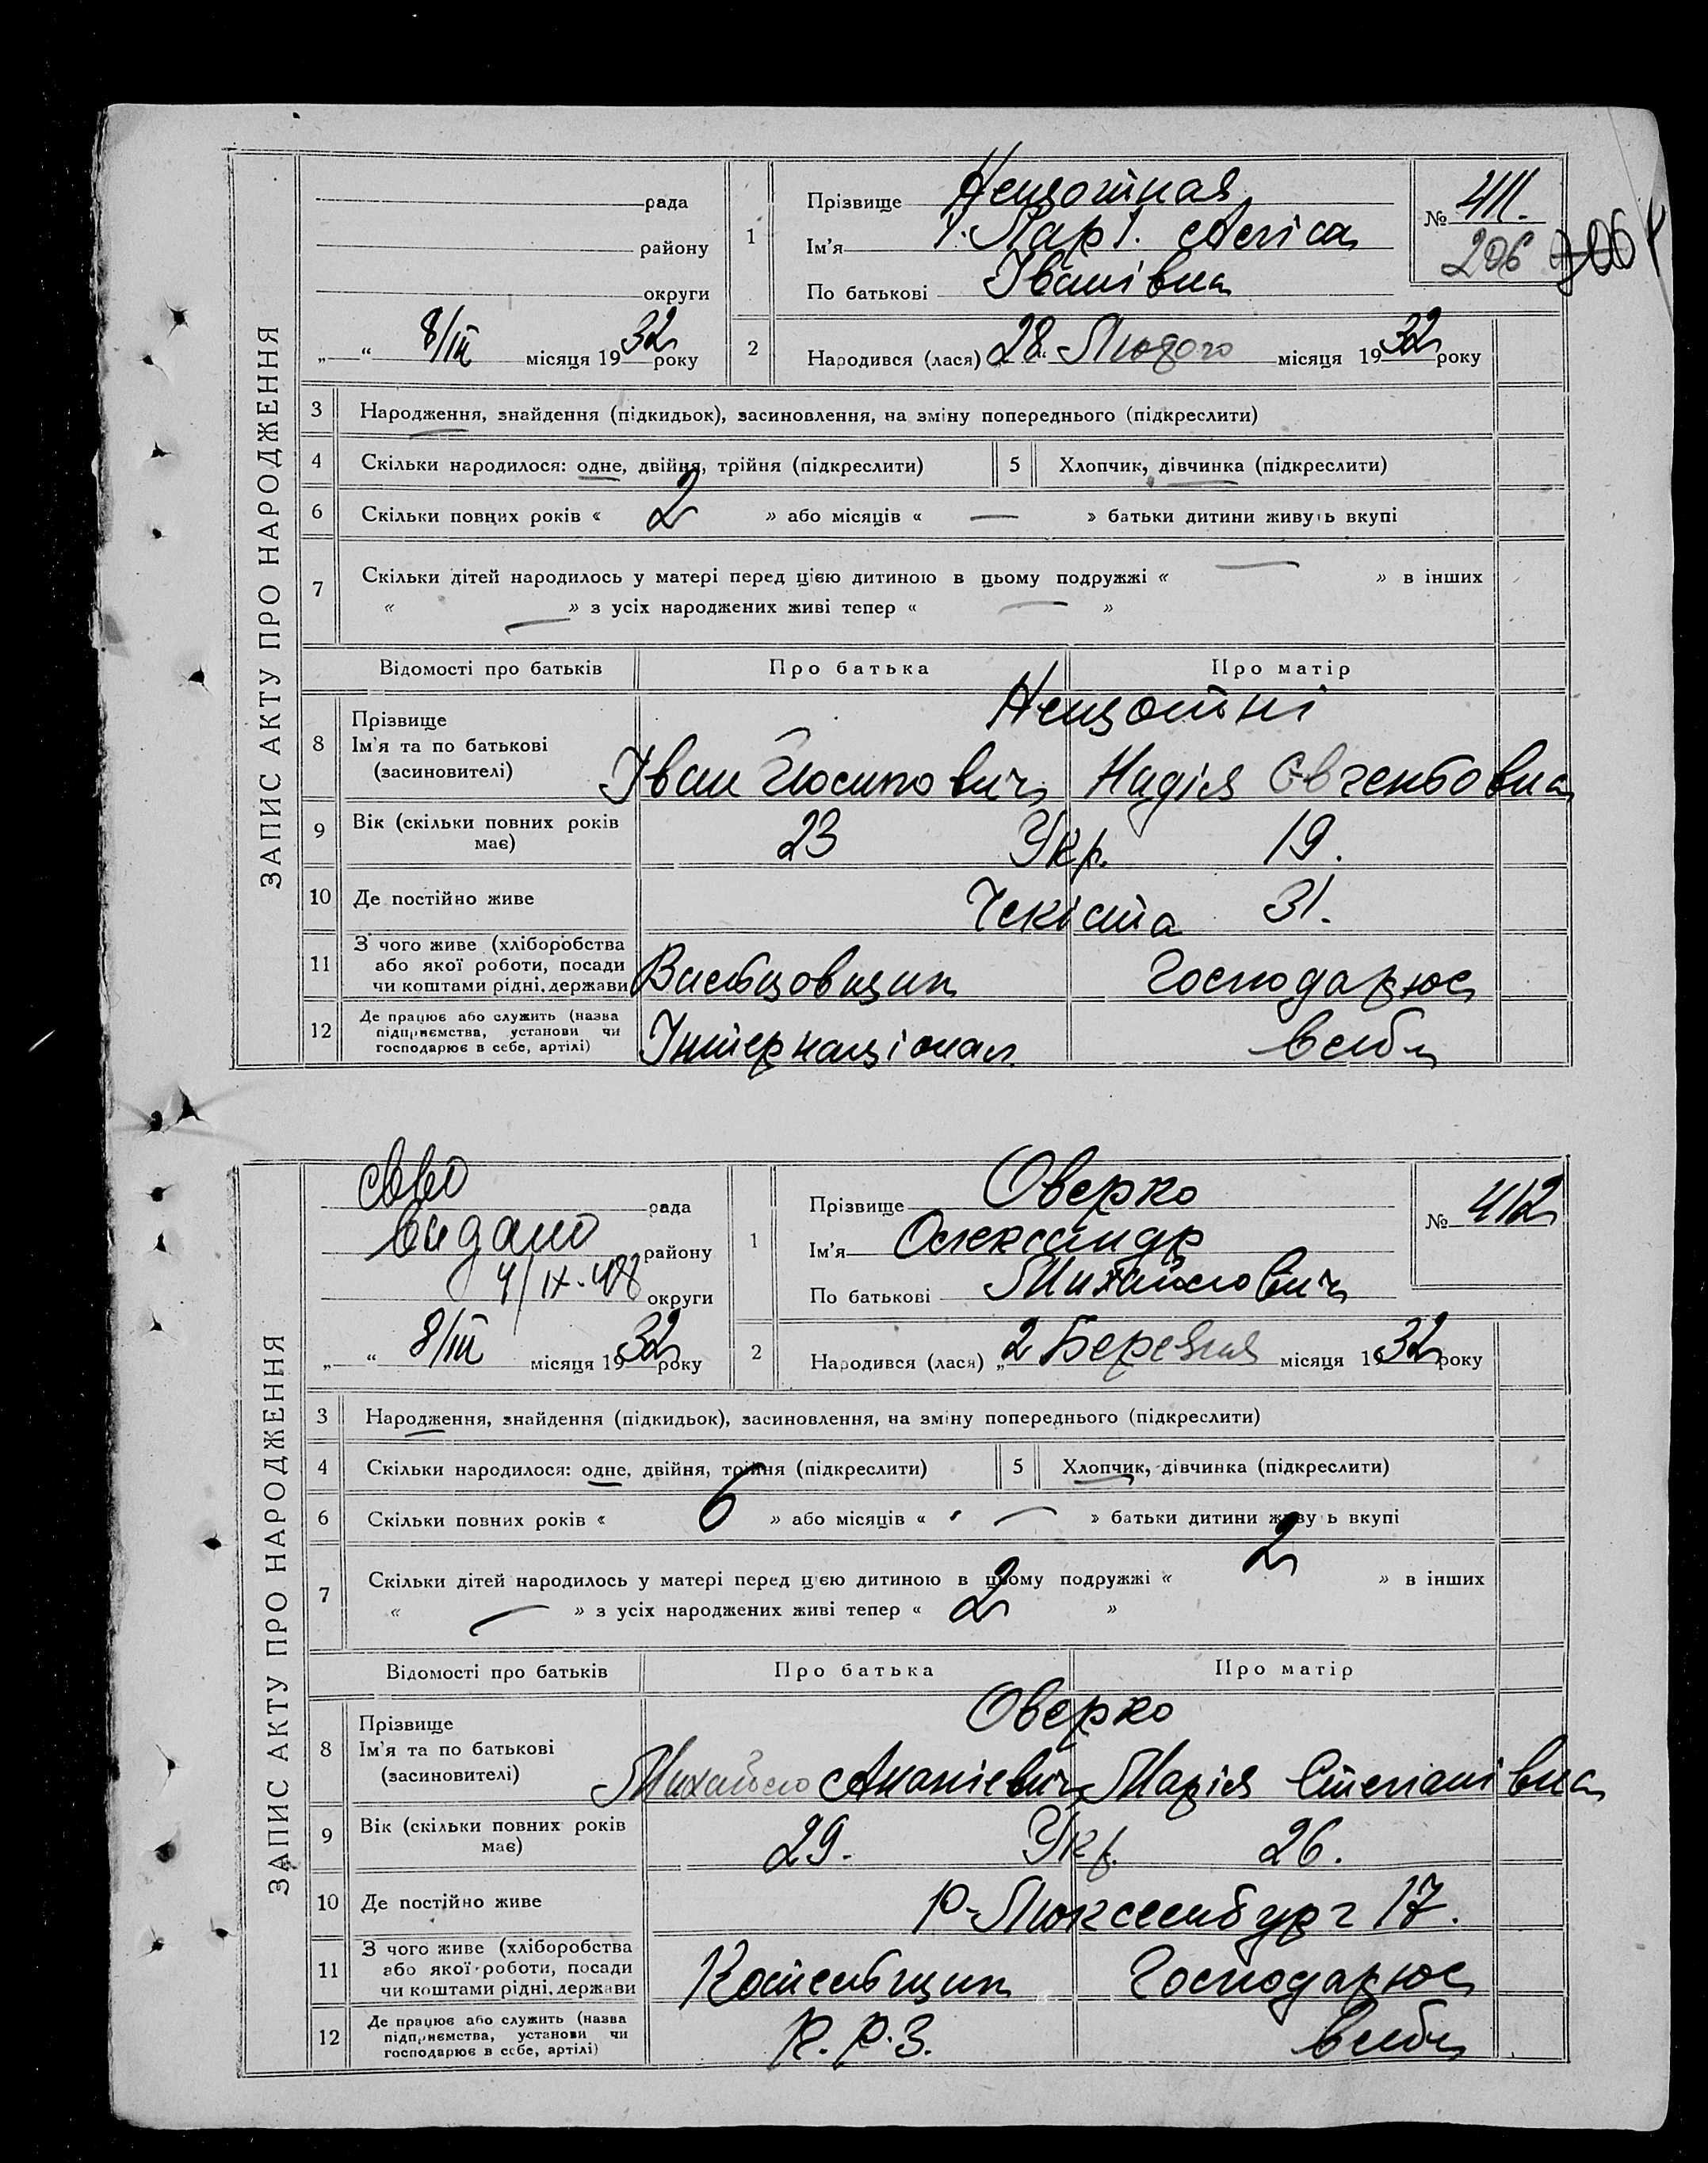 ЗАПИС АКТУ ПРО НАРОДЖЕННЯ
рада
району
округи
„ “ 8/III місяця 1932 року
1
Прізвище
Ім'я
По батькові Іванівна
№ 411.
206
2
Народився (лася) „28“ Лютого місяця 1932 року
3 Народження, знайдення (підкидьок), засиновлення, на зміну попереднього (підкреслити)
4 Скільки народилося: одне, двійня, трійня (підкреслити)
5 Хлопчик, дівчинка (підкреслити)
6 Скільки повних років « 2 » або місяців « — » батьки дитини живуть вкупі
7 Скільки дітей народилось у матері перед цією дитиною в цьому подружжі « — » в інших
« — » з усіх народжених живі тепер « — »
Відомості про батьків Про батька Про матір
8 Прізвище
Ім'я та по батькові
(засиновителі)
Іван Йосипович Надія
9 Вік (скільки повних років має) 23 Укр. 19.
10 Де постійно живе Чекіста 31.
11 З чого живе (хліборобства або якої роботи, посади чи коштами рідні, держави Господарює
12 Де працює або служить (назва підприємства, установи чи господарює в себе, артілі) Інтернаціонал вебе
ЗАПИС АКТУ ПРО НАРОДЖЕННЯ
св-во рада
видано району
4/IX-48 округи
„ “ 8/III місяця 1932 року
1
Прізвище Оверко
Ім'я Олександр
По батькові Михайлович
№ 412
2
Народився (лася) „2 Березня місяця 1932 року
3 Народження, знайдення (підкидьок), засиновлення, на зміну попереднього (підкреслити)
4 Скільки народилося: одне, двійня, трійня (підкреслити)
5 Хлопчик, дівчинка (підкреслити)
6 Скільки повних років « 6 » або місяців « — » батьки дитини живу ь вкупі
7 Скільки дітей народилось у матері перед цією дитиною в цьому подружжі « 2 » в інших
« — » з усіх народжених живі тепер « 2 »
Відомості про батьків Про батька Про матір
8 Прізвище
Ім'я та по батькові
(засиновителі)
Оверко
Михайло Ананієвич Марія Степанівна
9 Вік (скільки повних років має) 29. Укр. 26.
10 Де постійно живе Р-Люксембург 17.
11 З чого живе (хліборобства або якої роботи, посади чи коштами рідні, держави Котельщик Господарює
12 Де працює або служить (назва підприємства, установи чи господарює в себе, артілі) К.Р.З. вебе